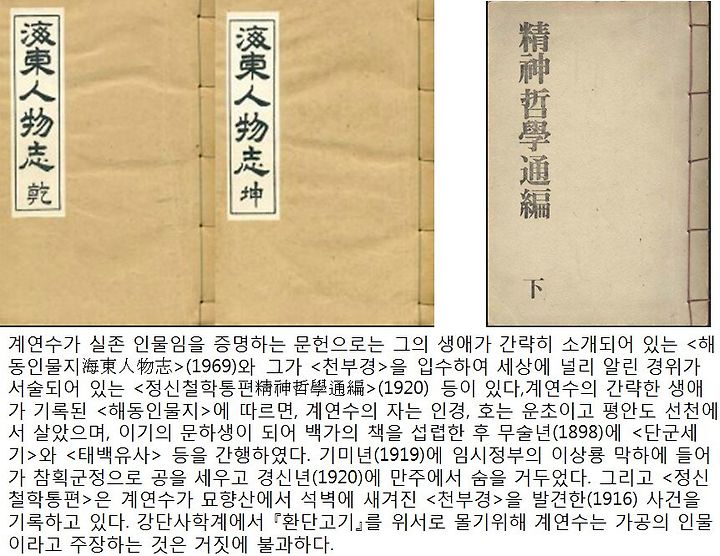 海東人物志 乾
海東人物志 坤
精神哲學通編 下
계연수가 실존 인물임을 증명하는 문헌으로는 그의 생애가 간략히 소개되어 있는 <해
동인물지海東人物志>(1969)와 그가 <천부경>을 입수하여 세상에 널리 알린 경위가
서술되어 있는 <정신철학통편精神哲學通編>(1920) 등이 있다,계연수의 간략한 생애
가 기록된 <해동인물지>에 따르면, 계연수의 자는 인경, 호는 운초이고 평안도 선천에
서 살았으며, 이기의 문하생이 되어 백가의 책을 섭렵한 후 무술년(1898)에 <단군세
기>와 <태백유사> 등을 간행하였다. 기미년(1919)에 임시정부의 이상룡 막하에 들어
가 참획군정으로 공을 세우고 경신년(1920)에 만주에서 숨을 거두었다. 그리고 <정신
철학통편>은 계연수가 묘향산에서 석벽에 새겨진 <천부경>을 발견한(1916) 사건을
기록하고 있다. 강단사학계에서 『환단고기』를 위서로 몰기위해 계연수는 가공의 인물
이라고 주장하는 것은 거짓에 불과하다.